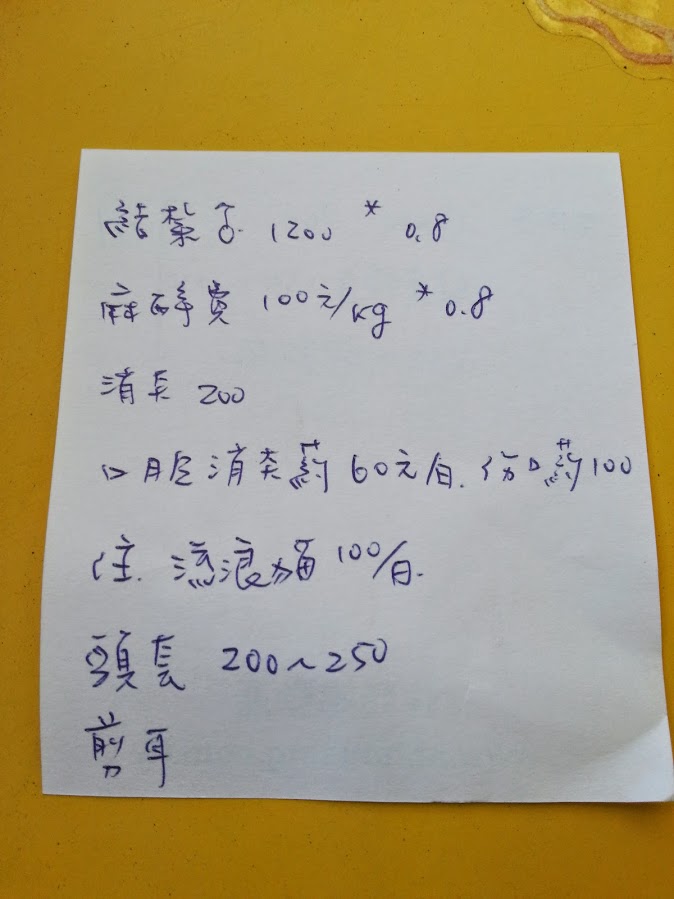 結紮ㄗ 1200 * 0.8
麻醉費 100元/kg * 0.8
消炎 200
口腔消炎葯 60元/日. 傷口葯 100
住. 流浪貓 100/日.
頭套 200~250
剪耳